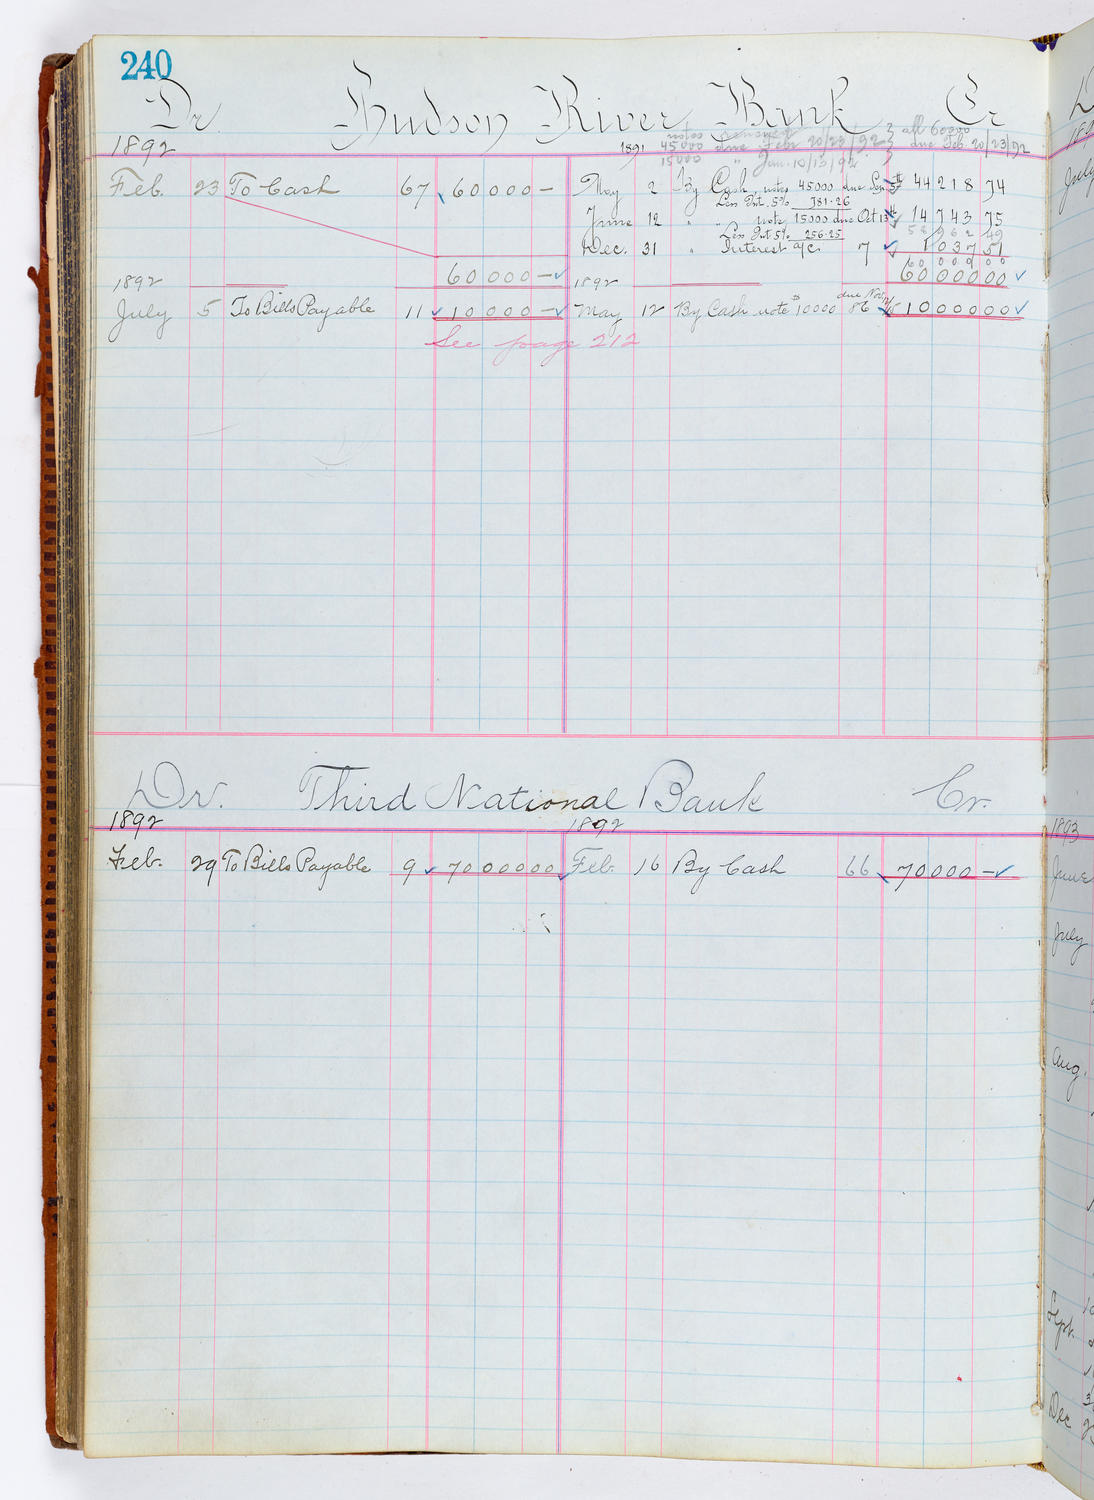 240
Dr. Hudson River Bank Cr
notes renewed
1892 1891 45000 due Feb 20/23/92 } all 60000 due Feb. 20/23/92
15000 " Jan. 10/13/92
Feb. 23 To Cash 67 60000 — May 2 By Cash, notes 45000 due Sep 5th 44218 74
Less Int. 5% 781.26
June 12 " " note 15000 due Oct 13th 14743 75
Less Int 5% 256.25 58962 49
Dec. 31 " Interest a/c 7 1037 51
60000 00
1892 60000 — 1892 60000 00
July 5 To Bills Payable 11 10000 — May 12 By Cash note 10000 due Nov 86 10000 00
See page 212
Dr. Third National Bank Cr.
1892 1892
Feb. 29 To Bills Payable 9 70000 00 Feb. 16 By Cash 66 70000 —
1893
June
July
Aug.
Sept.
Dec